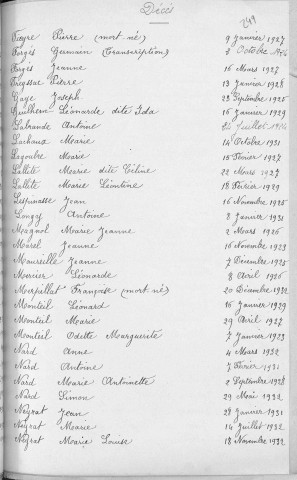 Décès
249
Fieyre Pierre (mort né) 9 Janvier 1927
Forgès Germain (Transcription) 3 Octobre
Forgès Jeanne 16 Mars 1927
Freyssac Pierre 13 Janvier 1928
Gaye Joseph 23 Septembre 1925
Guilhem Léonarde dite Ida 16 Janvier 1929
Labrande Antoine Juillet
Lachaux Marie 14 Octobre 1931
Lagoubre Marie 15 Février 1927
Lallète Marie dite Céline 22 Mars 1927
Lallète Marie Léontine 18 Février 1929
Lespinasse Jean 16 Novembre 1926
Longy Antoine 8 Janvier 1931
Magnol Marie Jeanne 2 Mars 1926
Maurel Jeanne 16 Novembre 1923
Maureille Jeanne 7 Décembre 1925
Mercier Léonarde 8 Avril 1926
Merpillet Française (mort né) 20 Décembre 1932
Monteil Léonard 16 Janvier 1929
Monteil Marie 29 Avril 1927
Monteil Odette Marguerite 7 Janvier 1923
Nard Anne 4 Mars 1932
Nard Antoine 7 Février 1931
Nard Marie Antoinette 2 Septembre 1928
Nard Simon 29 Mai 1932
Neyrat Jean 28 Janvier 1931
Neyrat Marie 14 Juillet 1932
Neyrat Marie Louise 18 Novembre 1932